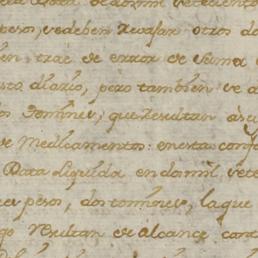 de dos mil setecientos
pesos, y deben rebajar otros do
ben trae de error de suma
sto diario, pero tambien se a
dos tomines, que resultan à su
se Medicamentos: en esta conf
Data liquida en dos mil, sete
pesos, dos tomines, la que
go resultan de alcance cont